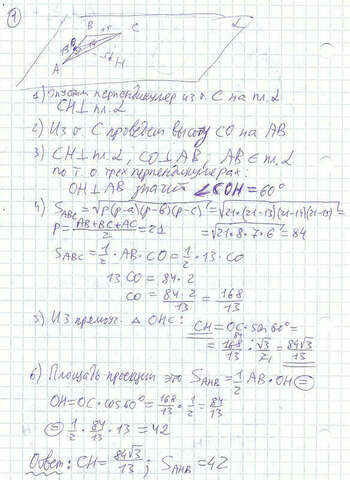 7
B C
B
A 15 H
α
1) Опустим перпендикуляр из т. C на пл. α
CH ⊥ пл. α
2) Из т. C проведем высоту CO на AB
3) CH ⊥ пл. α, CO ⊥ AB, AB ∈ пл. α
по т. о трех перпендикулярах:
OH ⊥ AB значит ∠COH = 60°
4) S_ABC = √p(p-a)(p-b)(p-c) = √21·(21-13)(21-14)(21-15) =
p = (AB+BC+AC)/2 = 21 = √21·8·7·6 = 84
S_ABC = 1/2 · AB · CO = 1/2 · 13 · CO
13 CO = 84 · 2
CO = 84·2/13 = 168/13
5) Из прямоуг. △ OHC: CH = OC · sin 60° =
= 168/13 · √3/2 = 84√3/13
6) Площадь проекции это S_AHB = 1/2 AB · OH =
OH = OC · cos 60° = 168/13 · 1/2 = 84/13
= 1/2 · 84/13 · 13 = 42
Ответ: CH = 84√3/13 ; S_AHB = 42